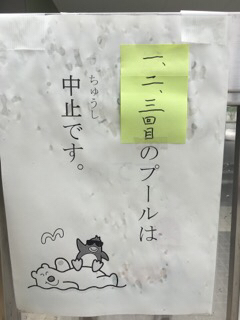 一、二、三回目のプールは
ちゅうし
中止です。